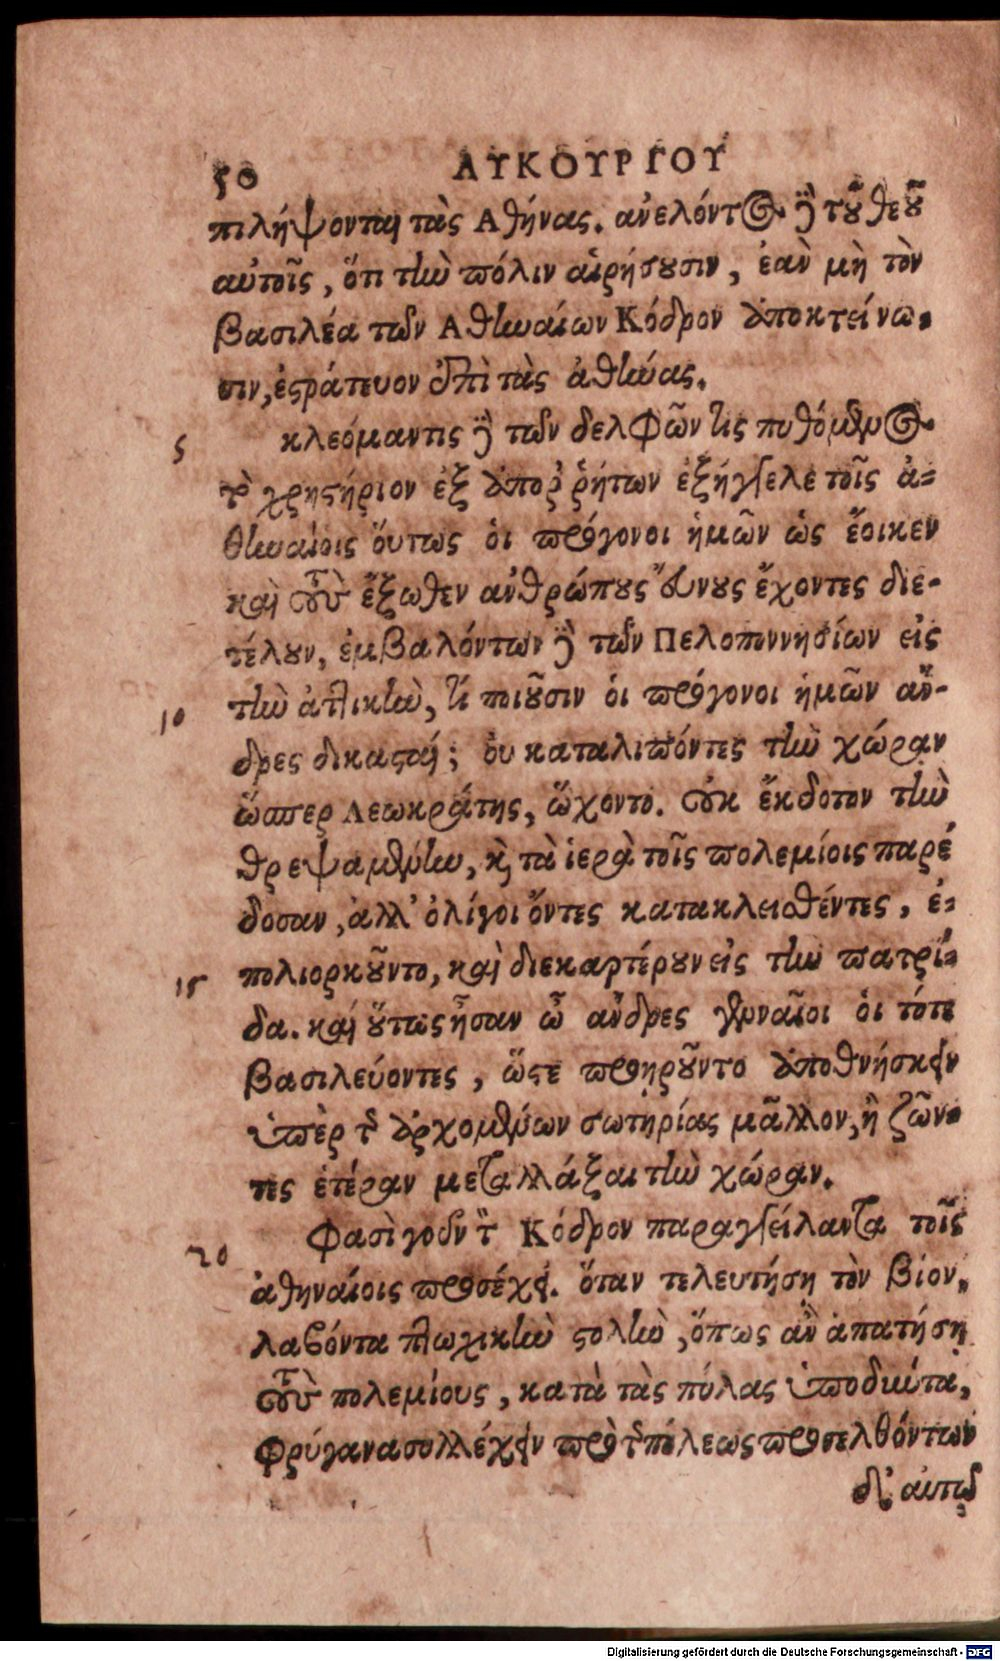 50 ΛΥΚΟΥΡΓΟΥ
πιλήψονται τὰς Αθήνας. ανελόντος δὲ τοῦ θεοῦ
αὐτοῖς, ὅτι τὴν πόλιν αἱρήσουσιν, ἐαν μὴ τὸν
βασιλέα των Αθηναίων Κόδρον ἀποκτείνω-
σιν, ἐστράτευον ἐπὶ τὰς ἀθήνας.
5 κλεόμαντις δὲ των δελφῶν τις πυθόμενος
τὸ χρηστήριον ἐξ ἀποῤῥήτων ἐξήγγελε τοῖς ἀ-
θηναίοις οὕτως οἱ πρόγονοι ἡμῶν ὡς ἔοικεν
καὶ τοὺς ἔξωθεν ανθρώπους εὔνους ἔχοντες διε-
τέλουν, ἐμβαλόντων δὲ των Πελοποννησίων εἰς
10 τὴν ἀττικὴν, τί ποιοῦσιν οἱ πρόγονοι ἡμῶν αν-
δρες δικασταί; ὀυ καταλιπόντες τὴν χώραν
ὥσπερ Λεωκράτης, ὤχοντο. οὐκ ἔκδοτον τὴν
θρεψαμένην, καὶ τὰ ἱερὰ τοῖς πολεμίοις παρέ
δοσαν, ἀλλ' ὀλίγοι ὄντες κατακλεισθέντες, ἐ-
15 πολιορκοῦντο, καὶ διεκαρτέρουν εἰς τὴν πατρί-
δα. καί οὕτως ἦσαν ὦ ανδρες γενναῖοι ὁι τότε
βασιλεύοντες, ὥστε προῃροῦντο ἀποθνήσκειν
ὑπὲρ τῆς ἀρχομένων σωτηρίας μᾶλλον, ἢ ζῶν-
τες ἑτέραν μεταλλάξαι τὴν χώραν.
20 Φασὶ γοῦν τὸν Κόδρον παραγγείλαντα τοῖς
ἀθηναίοις προσέχειν. ὅταν τελευτήση τὸν βίον,
λαβόντα πτωχικὴν στολὴν, ὅπως αν ἀπατήσῃ
τοὺς πολεμίους, κατὰ τὰς πύλας ὑποδύντα,
φρύγανα συλλέχειν πρὸ τῆς πόλεως προσελθόντων
δ' αυτῷ
Digitalisierung gefördert durch die Deutsche Forschungsgemeinschaft - DFG